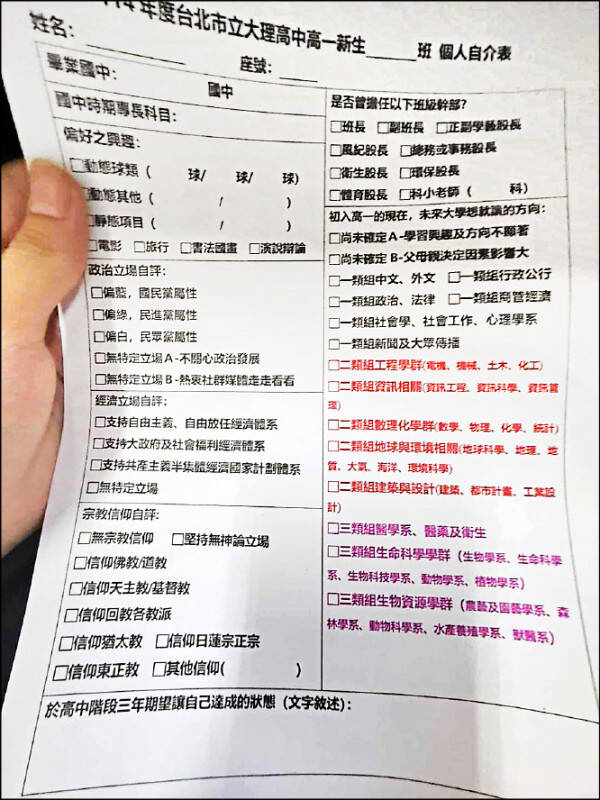 114年度台北市立大理高中高一新生______班 個人自介表
姓名：__________ 座號：____
畢業國中： 國中
國中時期專長科目：
偏好之興趣：
□動態球類（ 球/ 球/ 球）
□動態其他（ / ）
□靜態項目（ / ）
□電影 □旅行 □書法國畫 □演說辯論
政治立場自評：
□偏藍，國民黨屬性
□偏綠，民進黨屬性
□偏白，民眾黨屬性
□無特定立場A-不關心政治發展
□無特定立場B-熱衷社群媒體走走看看
經濟立場自評：
□支持自由主義、自由放任經濟體系
□支持大政府及社會福利經濟體系
□支持共產主義半集體經濟國家計劃體系
□無特定立場
宗教信仰自評：
□無宗教信仰 □堅持無神論立場
□信仰佛教/道教
□信仰天主教/基督教
□信仰回教各教派
□信仰猶太教 □信仰日蓮宗正宗
□信仰東正教 □其他信仰( )
是否曾擔任以下班級幹部?
□班長 □副班長 □正副學藝股長
□風紀股長 □總務或事務股長
□衛生股長 □環保股長
□體育股長 □科小老師（ 科）
初入高一的現在，未來大學想就讀的方向：
□尚未確定A-學習興趣及方向不顯著
□尚未確定B-父母親決定因素影響大
□一類組中文、外文 □一類組行政公行
□一類組政治、法律 □一類組商管經濟
□一類組社會學、社會工作、心理學系
□一類組新聞及大眾傳播
□二類組工程學群(電機、機械、土木、化工)
□二類組資訊相關(資訊工程、資訊科學、資訊管
理)
□二類組數理化學群(數學、物理、化學、統計)
□二類組地球與環境相關(地球科學、地理、地
質、大氣、海洋、環境科學)
□二類組建築與設計(建築、都市計畫、工業設
計)
□三類組醫學系、醫藥及衛生
□三類組生命科學學群（生物學系、生命科學
系、生物科技學系、動物學系、植物學系）
□三類組生物資源學群（農藝及園藝學系、森
林學系、動物科學系、水產養殖學系、獸醫系）
於高中階段三年期望讓自己達成的狀態（文字敘述）：